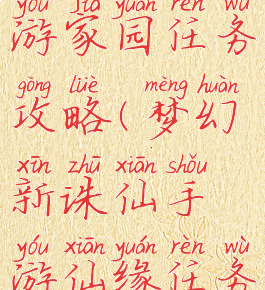 yóu jiā yuán rèn wù
游家园任务
gōng lüè mèng huàn
攻略(梦幻
xīn zhū xiān shǒu
新诛仙手
yóu xiān yuán rèn wù
游仙缘任务